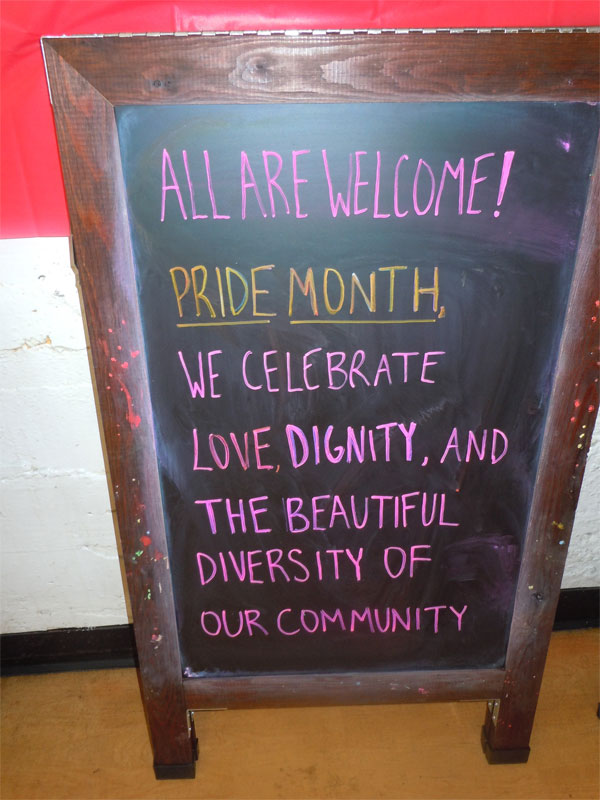 ALL ARE WELCOME!
PRIDE MONTH,
WE CELEBRATE
LOVE, DIGNITY, AND
THE BEAUTIFUL
DIVERSITY OF
OUR COMMUNITY